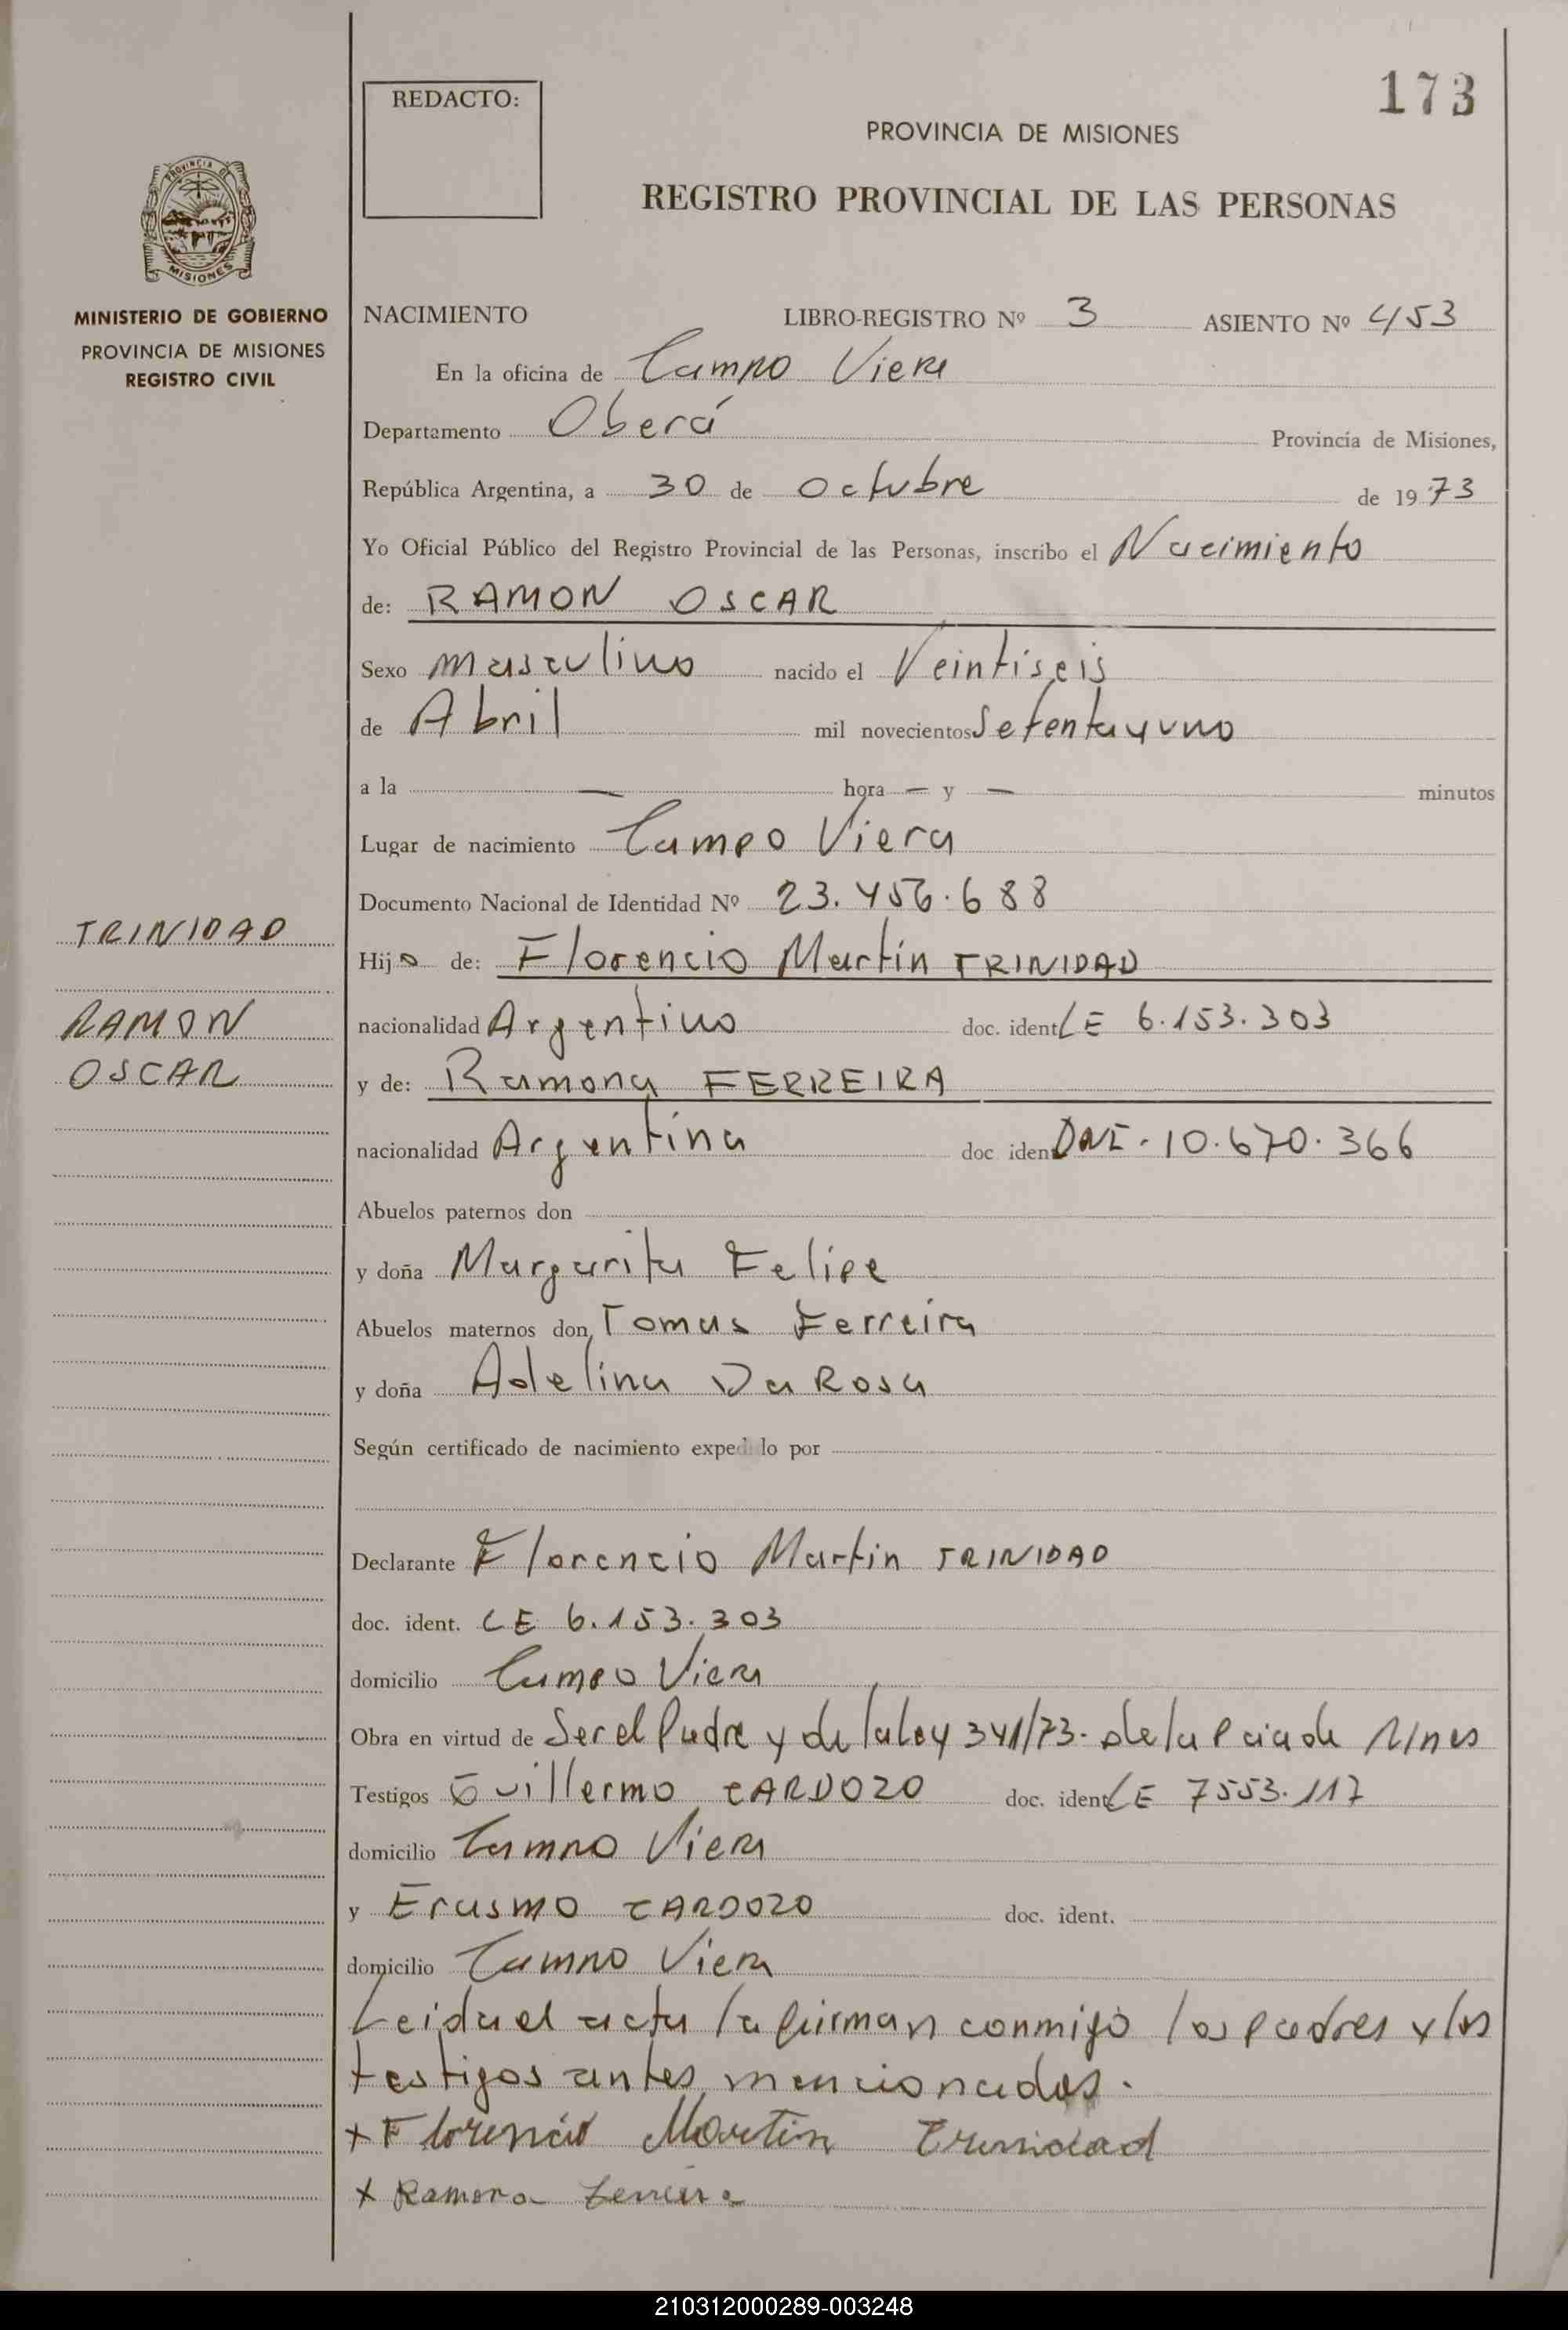 173
REDACTO:
PROVINCIA DE MISIONES
REGISTRO PROVINCIAL DE LAS PERSONAS
PROVINCIA DE
MISIONES
MINISTERIO DE GOBIERNO
PROVINCIA DE MISIONES
REGISTRO CIVIL
NACIMIENTO LIBRO-REGISTRO Nº 3 ASIENTO Nº 453
En la oficina de Campo Viera
Departamento Oberá Provincia de Misiones,
República Argentina, a 30 de Octubre de 1973
Yo Oficial Público del Registro Provincial de las Personas, inscribo el Nacimiento
de: RAMON OSCAR
Sexo masculino nacido el Veintiseis
de Abril mil novecientos Setenta y uno
a la — hora — y — minutos
Lugar de nacimiento Campo Viera
Documento Nacional de Identidad Nº 23.456.688
TRINIDAD
Hijo de: Florencio Martín TRINIDAD
RAMON
nacionalidad Argentino doc. ident LE 6.153.303
OSCAR
y de: Ramona FERREIRA
nacionalidad Argentina doc iden DNI - 10.670.366
Abuelos paternos don
y doña Margarita Felipe
Abuelos maternos don, Tomas Ferreira
y doña Adelina Da Rosa
Según certificado de nacimiento exped lo por
Declarante Florencio Martin TRINIDAD
doc. ident. LE 6.153.303
domicilio Campo Viera
Obra en virtud de Ser el Padre y de la ley 341/73- de la Pcia de Mnes
Testigos Guillermo CARDOZO doc. ident LE 7553.117
domicilio Campo Viera
y Erasmo CARDOZO doc. ident.
domicilio Campo Viera
Leida el acta la firman conmigo los padres y los
testigos antes mencionados.
+ Florencio Martin Trinidad
+ Ramona Ferreira
210312000289-003248